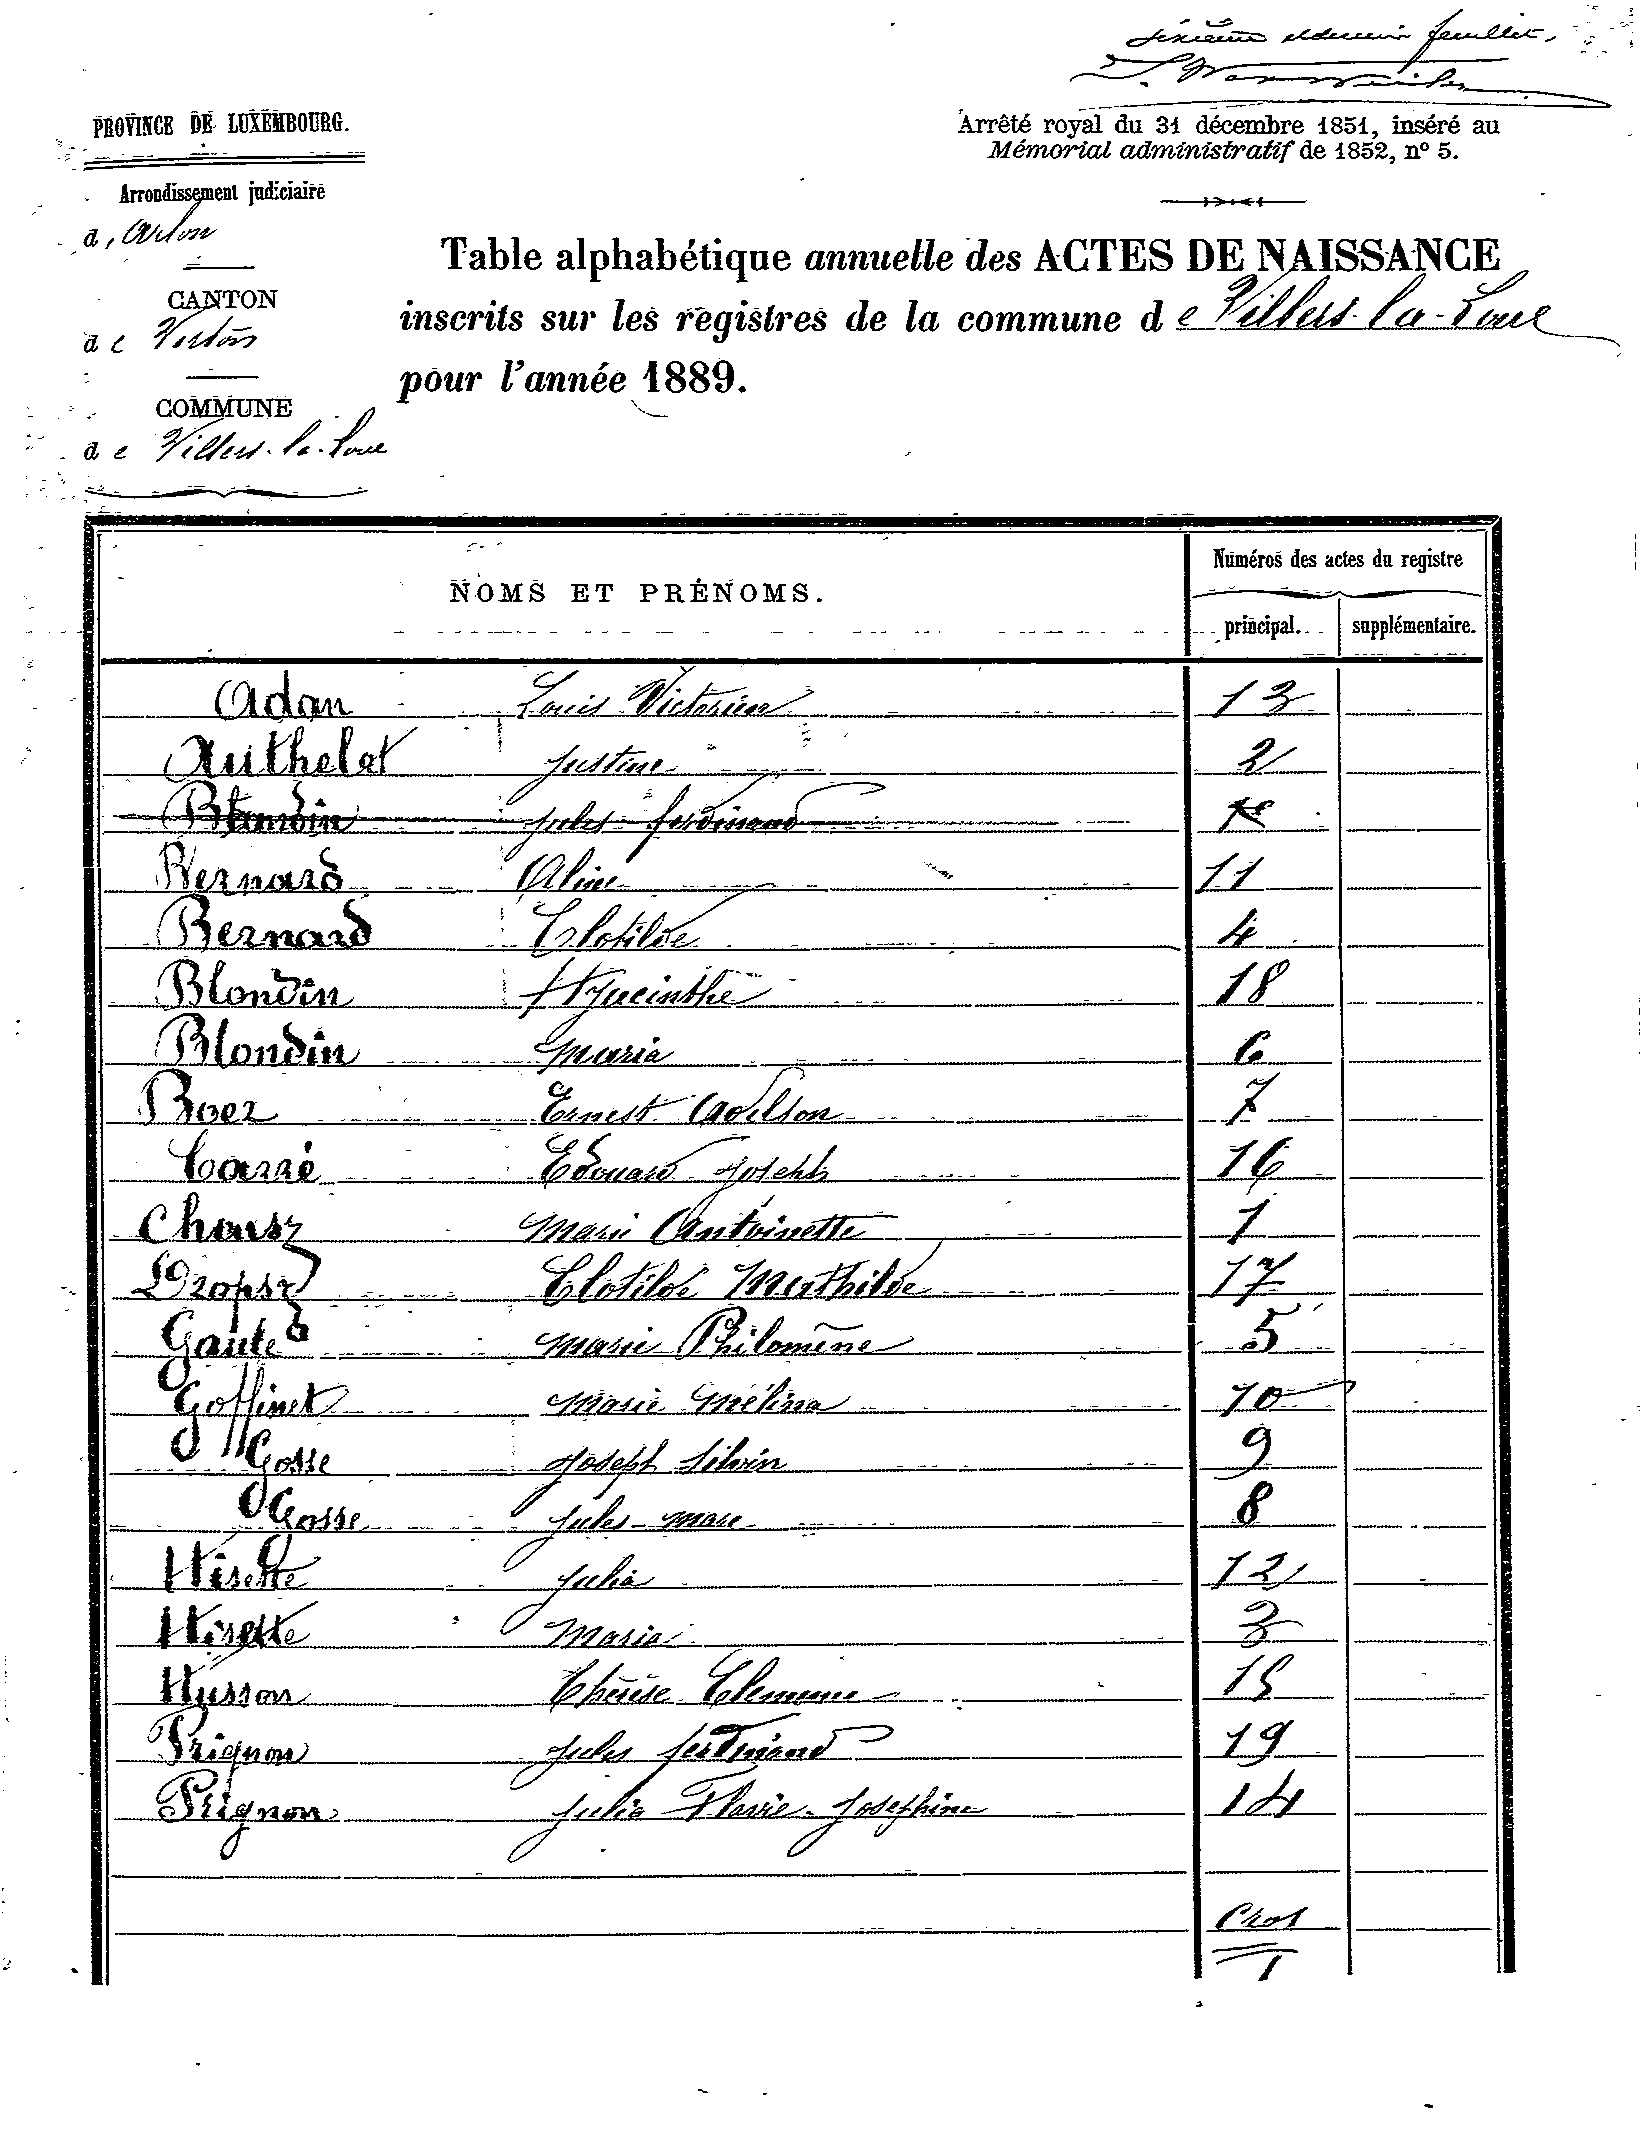 sixième et dernier feuillet.
PROVINCE DE LUXEMBOURG.
Arrêté royal du 31 décembre 1851, inséré au
Mémorial administratif de 1852, nº 5.
Arrondissement judiciaire
d'Arlon
CANTON
de Virton
COMMUNE
de Villers-la-Loue
Table alphabétique annuelle des ACTES DE NAISSANCE
inscrits sur les registres de la commune de Villers-la-Loue
pour l'année 1889.
NOMS ET PRÉNOMS.
Numéros des actes du registre
principal. supplémentaire.
Adan Louis Victorien 13
Authelet Justine 2
Blondin Jules Ferdinand
Bernard Aline 11
Bernard Clotilde 4
Blondin Hyacinthe 18
Blondin Maria 6
Boez Ernest Adelson 7
Carré Edouard Joseph 16
Marie Antoinette 1
Dropsy Clotilde Mathilde 17
Marie Philomène 5
Goffinet Marie Mélina 10
Gosse Joseph Silvin 9
Gosse Jules Marc 8
Hisette Julia 12
Hisette Maria 3
Husson Thérèse Clemence 15
Prignon Jules Ferdinand 19
Prignon Julia Flavie Josephine 14